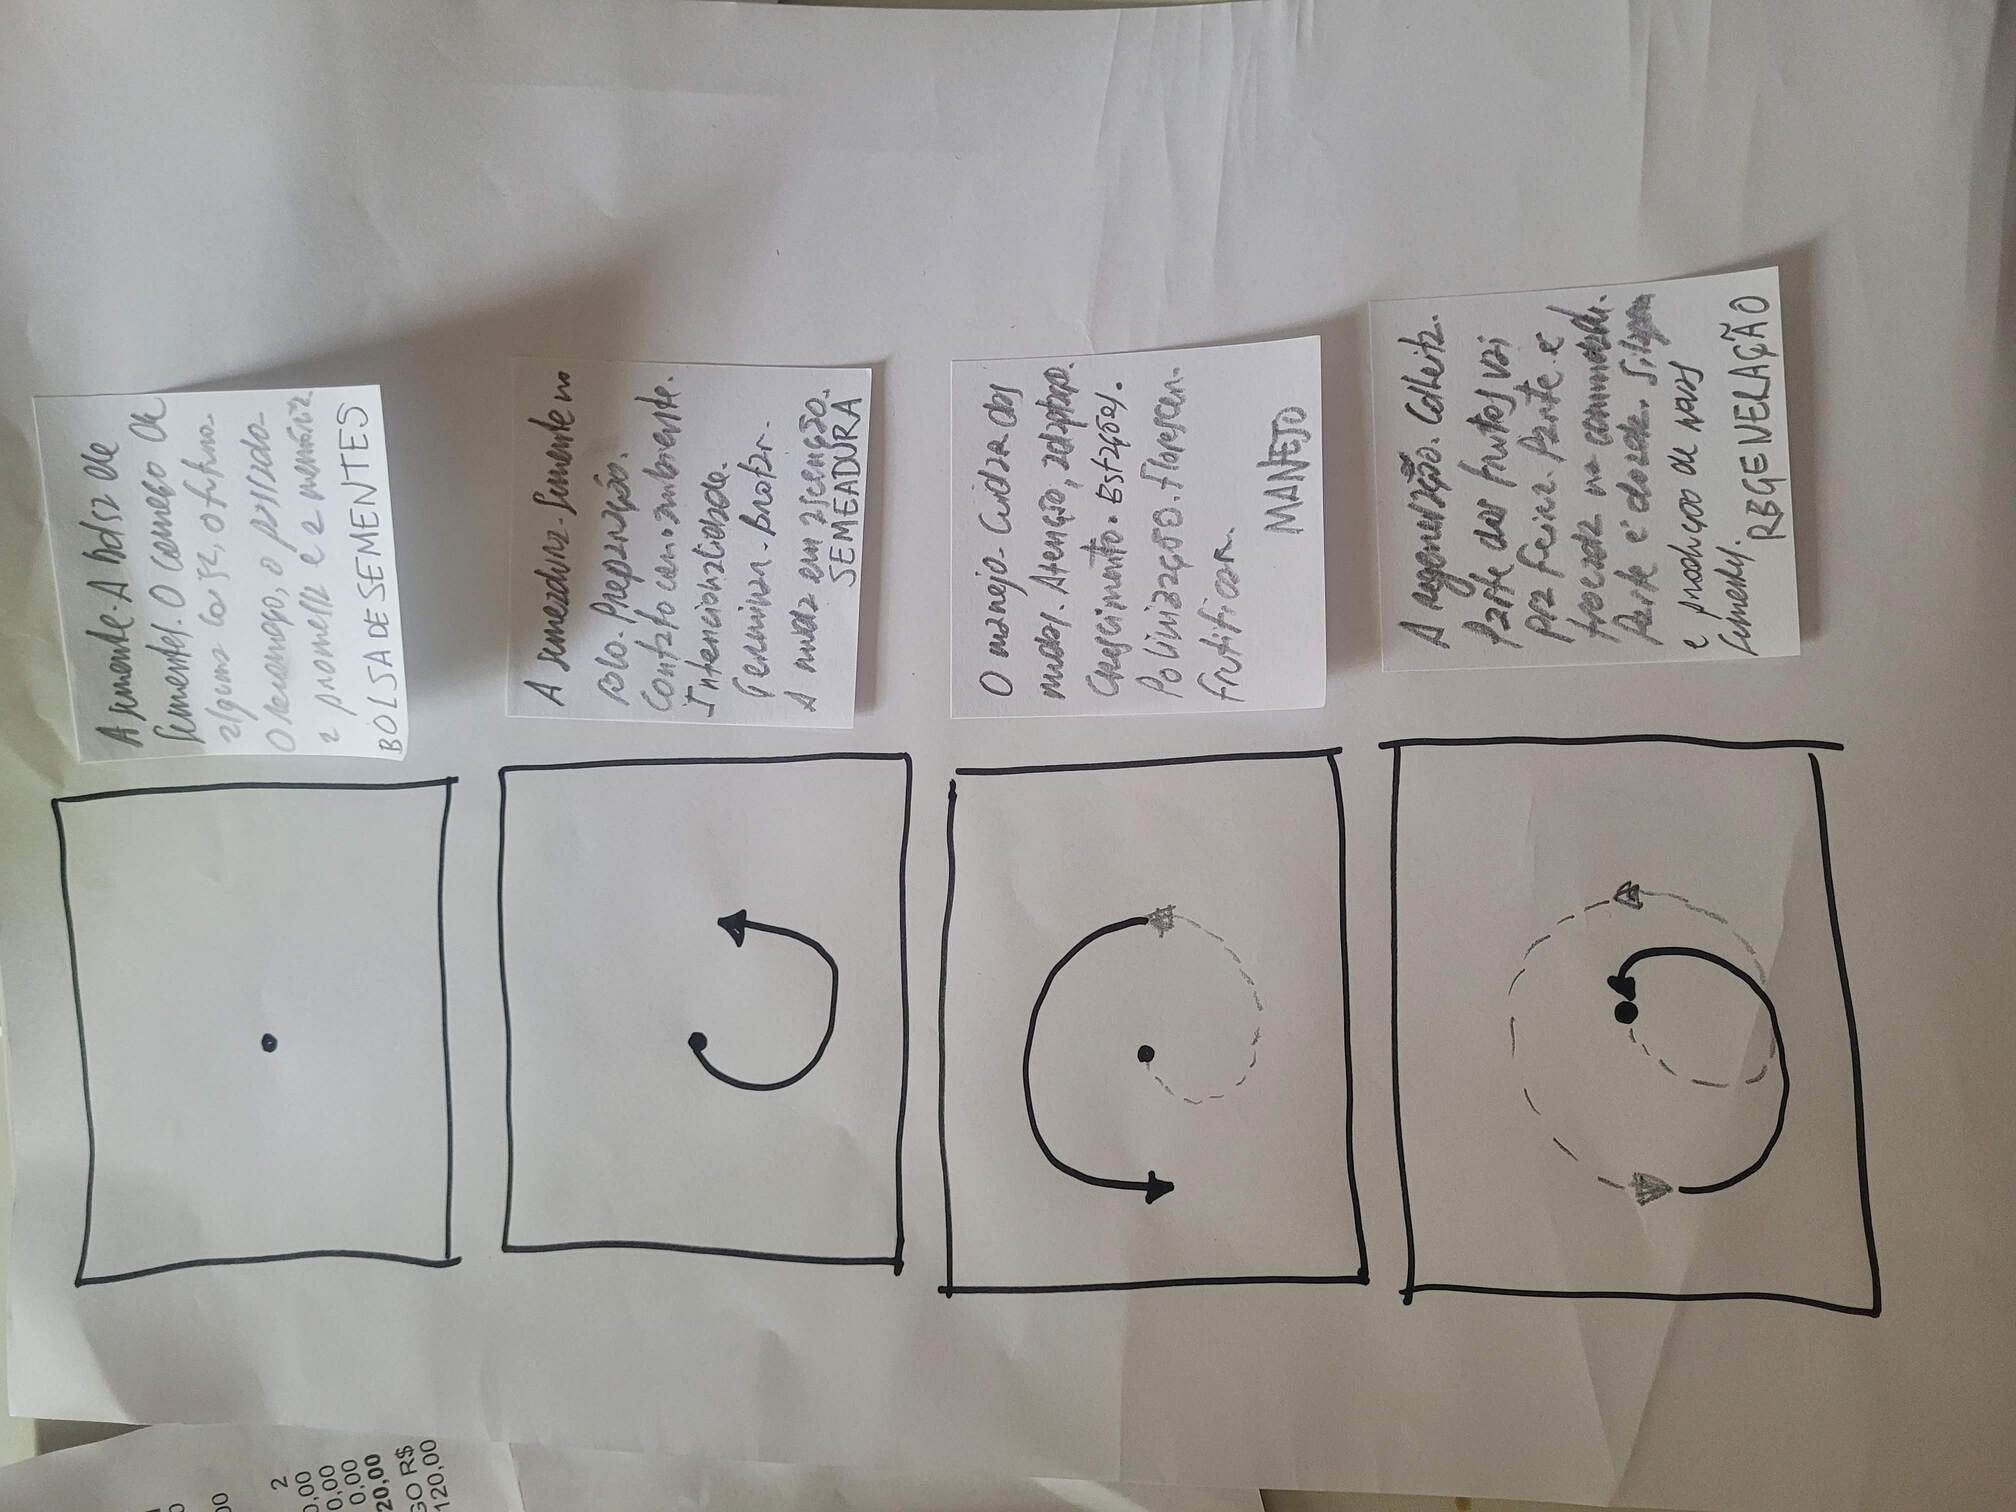 2
0,00
0,00
0,00
20,00
GO R$
120,00
A semente. A Bolsa de
Sementes. O começo de
alguma coisa, o futuro.
O recomeço, o passado
a promessa e a memória
BOLSA DE SEMENTES
A semeadura. Semente no
solo. Preparação.
Contato com o ambiente.
Intencionalidade.
Germinar. Brotar.
A muda em ascenção.
SEMEADURA
O manejo. Cuidar das
mudas. Atenção, adaptação.
Crescimento. Estações.
Polinização. Florescer.
frutificar.
MANEJO
A regeneração. Colheita.
Parte dos frutos vai
pra feira. Parte é
trocada na comunidade.
Parte é doada.
e produção de novas
sementes.
REGENERAÇÃO